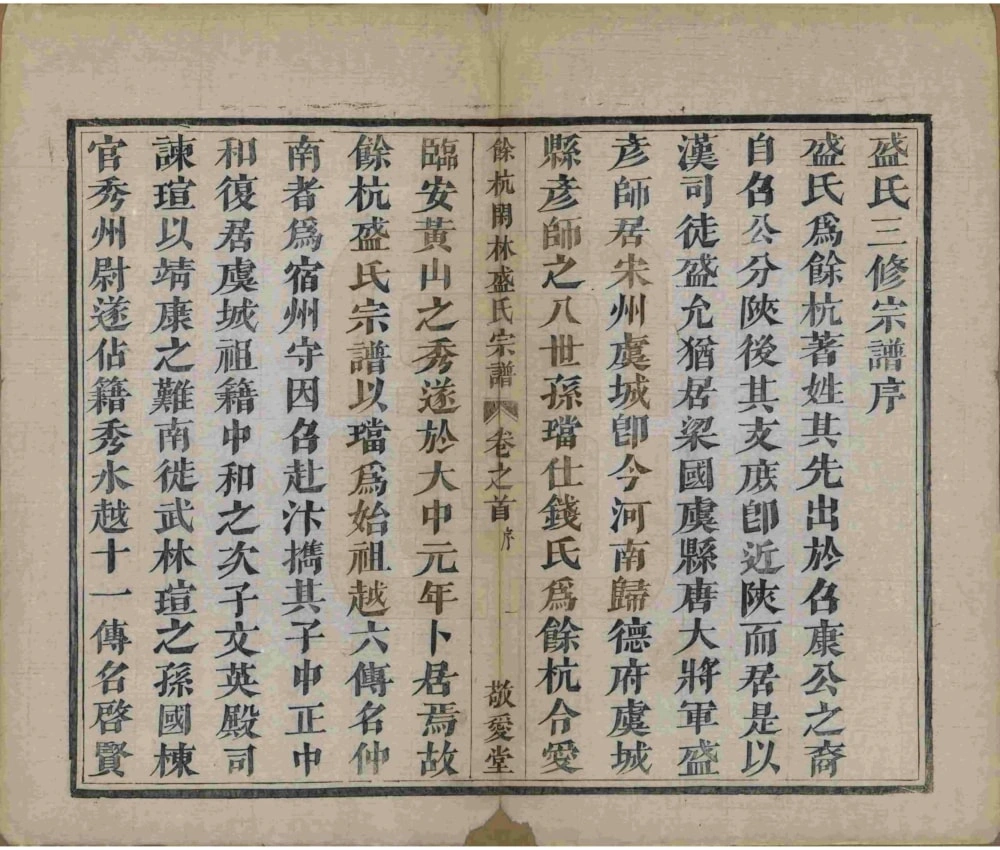 盛氏三修宗譜序
盛氏爲餘杭著姓其先出於召康公之裔
自召公分陝後其支庶卽近陝而居是以
漢司徒盛允猶居梁國虞縣唐大將軍盛
彥師居宋州虞城卽今河南歸德府虞城
縣彥師之八世孫璫仕錢氏爲餘杭令愛
餘杭閑林盛氏宗譜 卷之首 序 一 敬愛堂
臨安黃山之秀遂於大中元年卜居焉故
餘杭盛氏宗譜以璫爲始祖越六傳名仲
南者爲宿州守因召赴汴擕其子中正中
和復居虞城祖籍中和之次子文英殿司
諫瑄以靖康之難南徙武林瑄之孫國棟
官秀州尉遂佔籍秀水越十一傳名啓賢